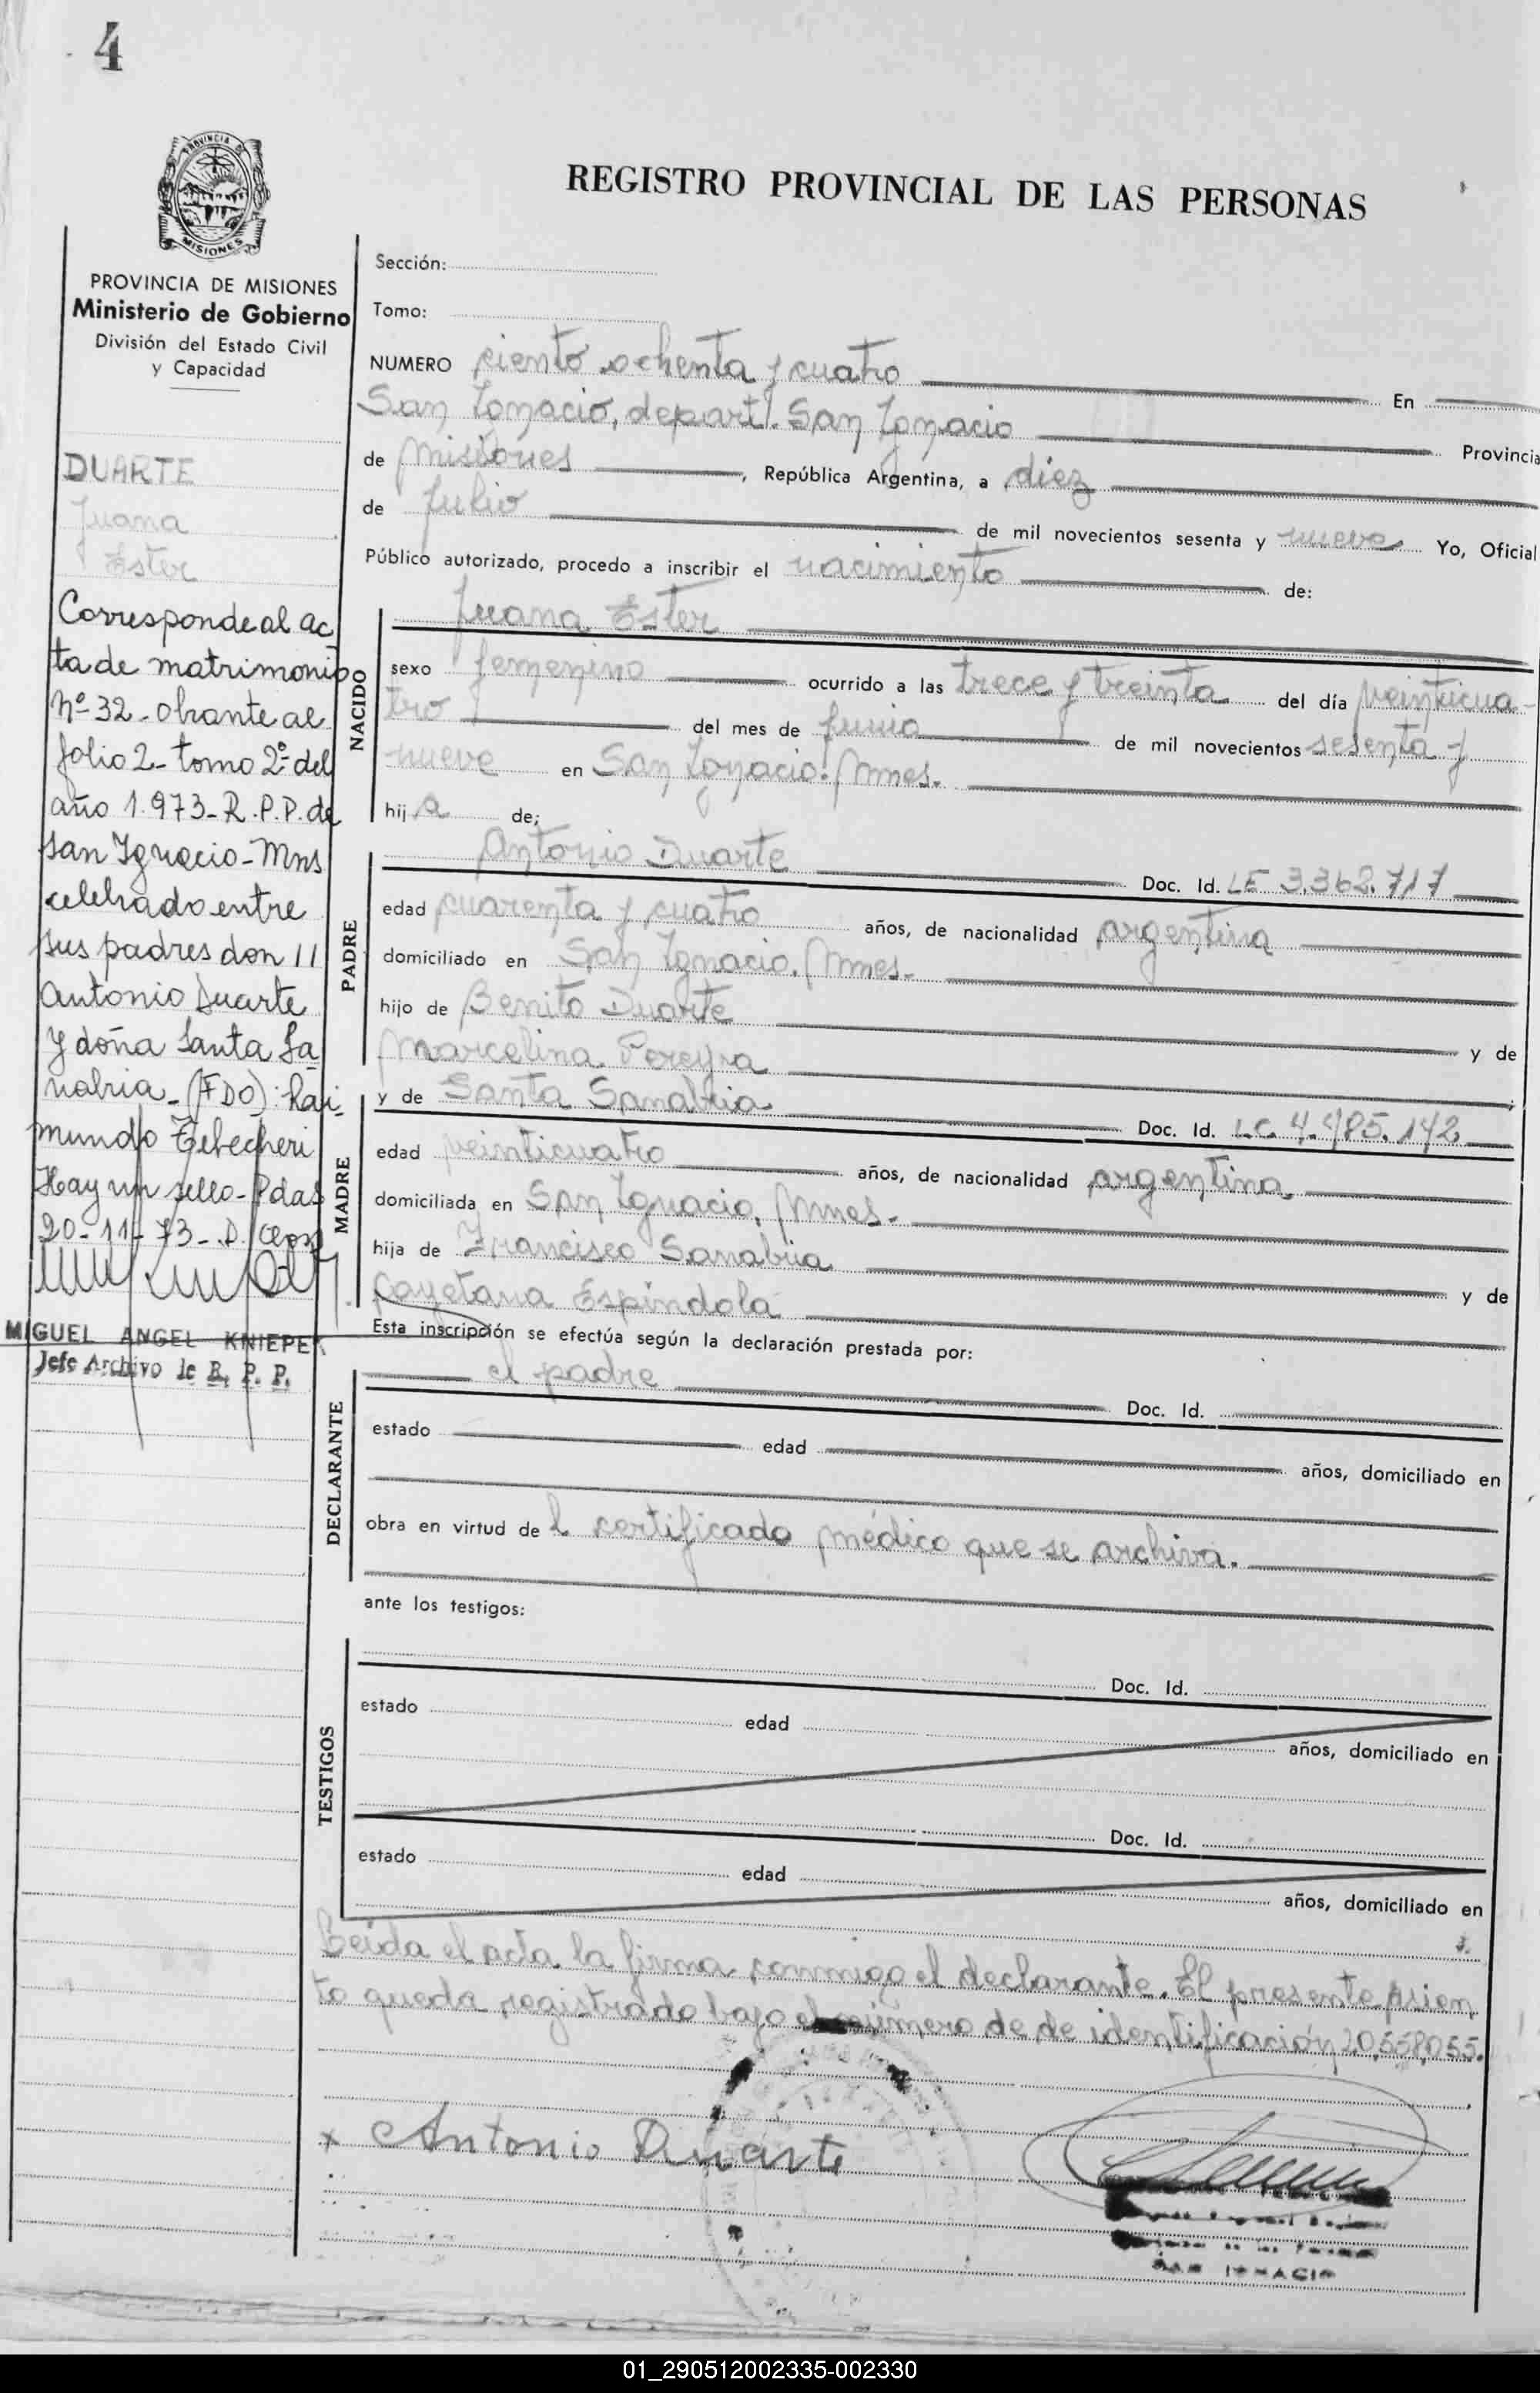 4
PROVINCIA DE
MISIONES
REGISTRO PROVINCIAL DE LAS PERSONAS
PROVINCIA DE MISIONES
Ministerio de Gobierno
División del Estado Civil
y Capacidad
DUARTE
Juana
Ester
Corresponde al ac
ta de matrimonio
nº 32 - obrante al
folio 2 - tomo 2º del
año 1.973 - R.P.P. de
San Ignacio - Mns
celebrado entre
sus padres don 11
Antonio Duarte
y doña Santa Sa
nabria - (FDO): Rai-
mundo Tebecheri
Hay un sello - Pdas
20-11-73 - D.
MIGUEL ANGEL KNIEPER
Jefe Archivo de R. P. P.
Sección:
Tomo:
NUMERO ciento ochenta y cuatro En
San Ignacio, depart. San Ignacio Provincia
de Misiones, República Argentina, a diez
de Julio de mil novecientos sesenta y nueve Yo, Oficial
Público autorizado, procedo a inscribir el nacimiento de:
NACIDO
Juana Ester
sexo femenino ocurrido a las trece y treinta del día veinticua-
tro del mes de junio de mil novecientos sesenta y
nueve en San Ignacio. Mnes.
hija de:
PADRE
Antonio Duarte Doc. Id. LE 3.362.717
edad cuarenta y cuatro años, de nacionalidad argentina
domiciliado en San Ignacio. Mnes.-
hijo de Benito Duarte y de
Marcelina Pereyra ;
MADRE
y de Santa Sanabria Doc. Id. L.C. 4.985.142
edad veinticuatro años, de nacionalidad argentina.
domiciliada en San Ignacio, Mnes.-
hija de Francisco Sanabria y de
Cayetana Espíndola
Esta inscripción se efectúa según la declaración prestada por:
DECLARANTE
el padre Doc. Id.
estado edad años, domiciliado en
obra en virtud del certificado médico que se archiva.
ante los testigos:
TESTIGOS
Doc. Id.
estado edad años, domiciliado en
Doc. Id.
estado edad años, domiciliado en
Leída el acta la firma conmigo el declarante. El presente asien
to queda registrado bajo el número de de identificación 20.558.055.
x Antonio Duarte
SAN IGNACIO
01_290512002335-002330